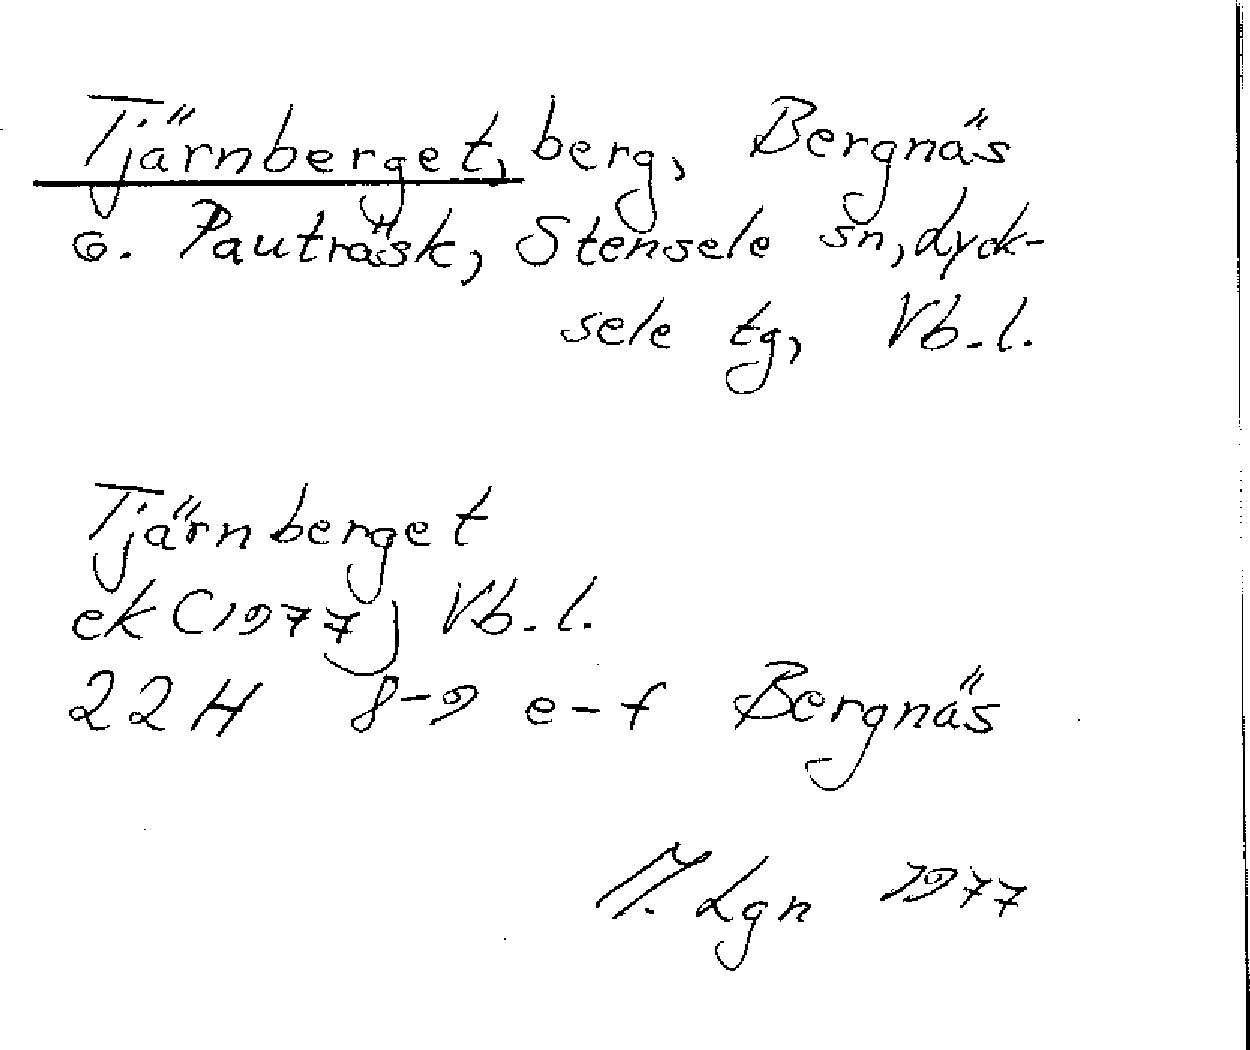 Tjärnberget, berg, Bergnäs
o. Pauträsk, Stensele sn, Lyck-
sele tg, Vb.l.
Tjärnberget
ek (1977) Vb.l.
22H 8-9 e-f Bergnäs
M. Lgn 1977